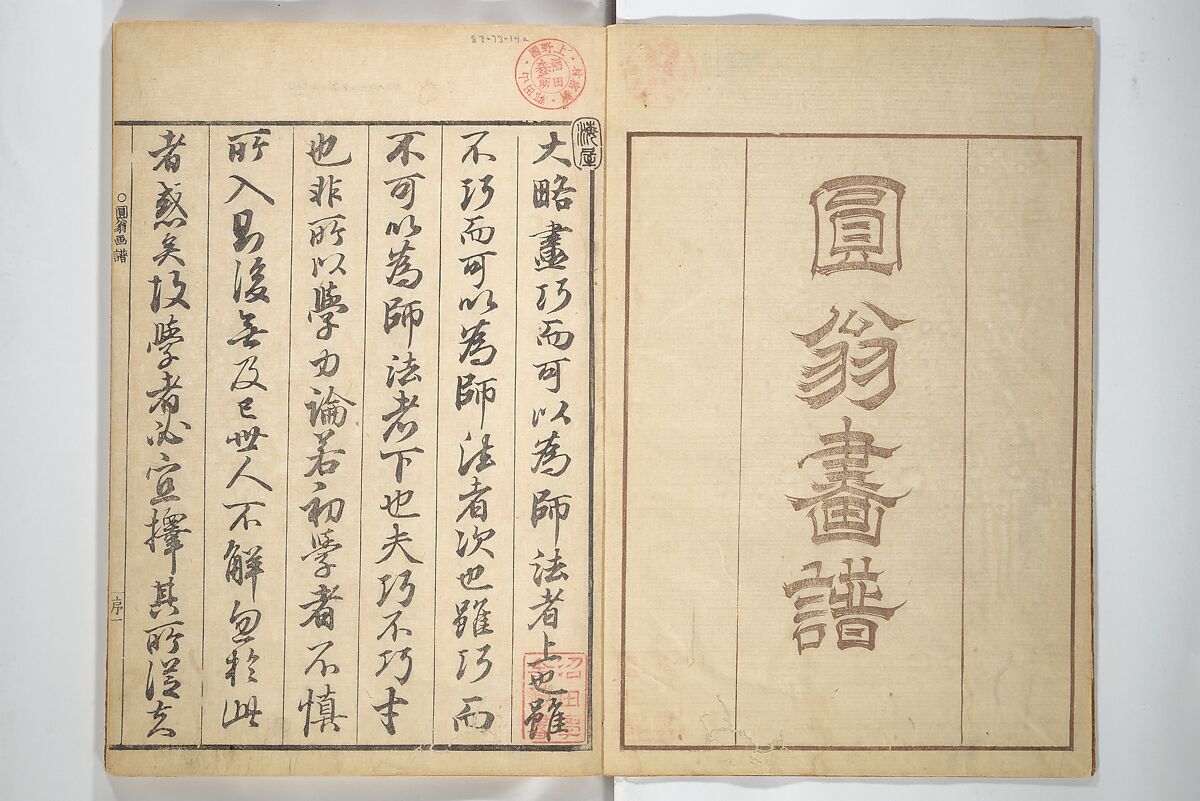 圓翁畫譜
87-73-14a
海屋
大略畫巧而可以為師法者上也雖
不巧而可以為師法者次也雖巧而
不可以為師法者下也夫巧不巧才
也非所以學力論若初學者不慎
所入則後無及已世人不解忽於此
者惑矣故學者必宜擇其所從矣
○圓翁画譜
序一